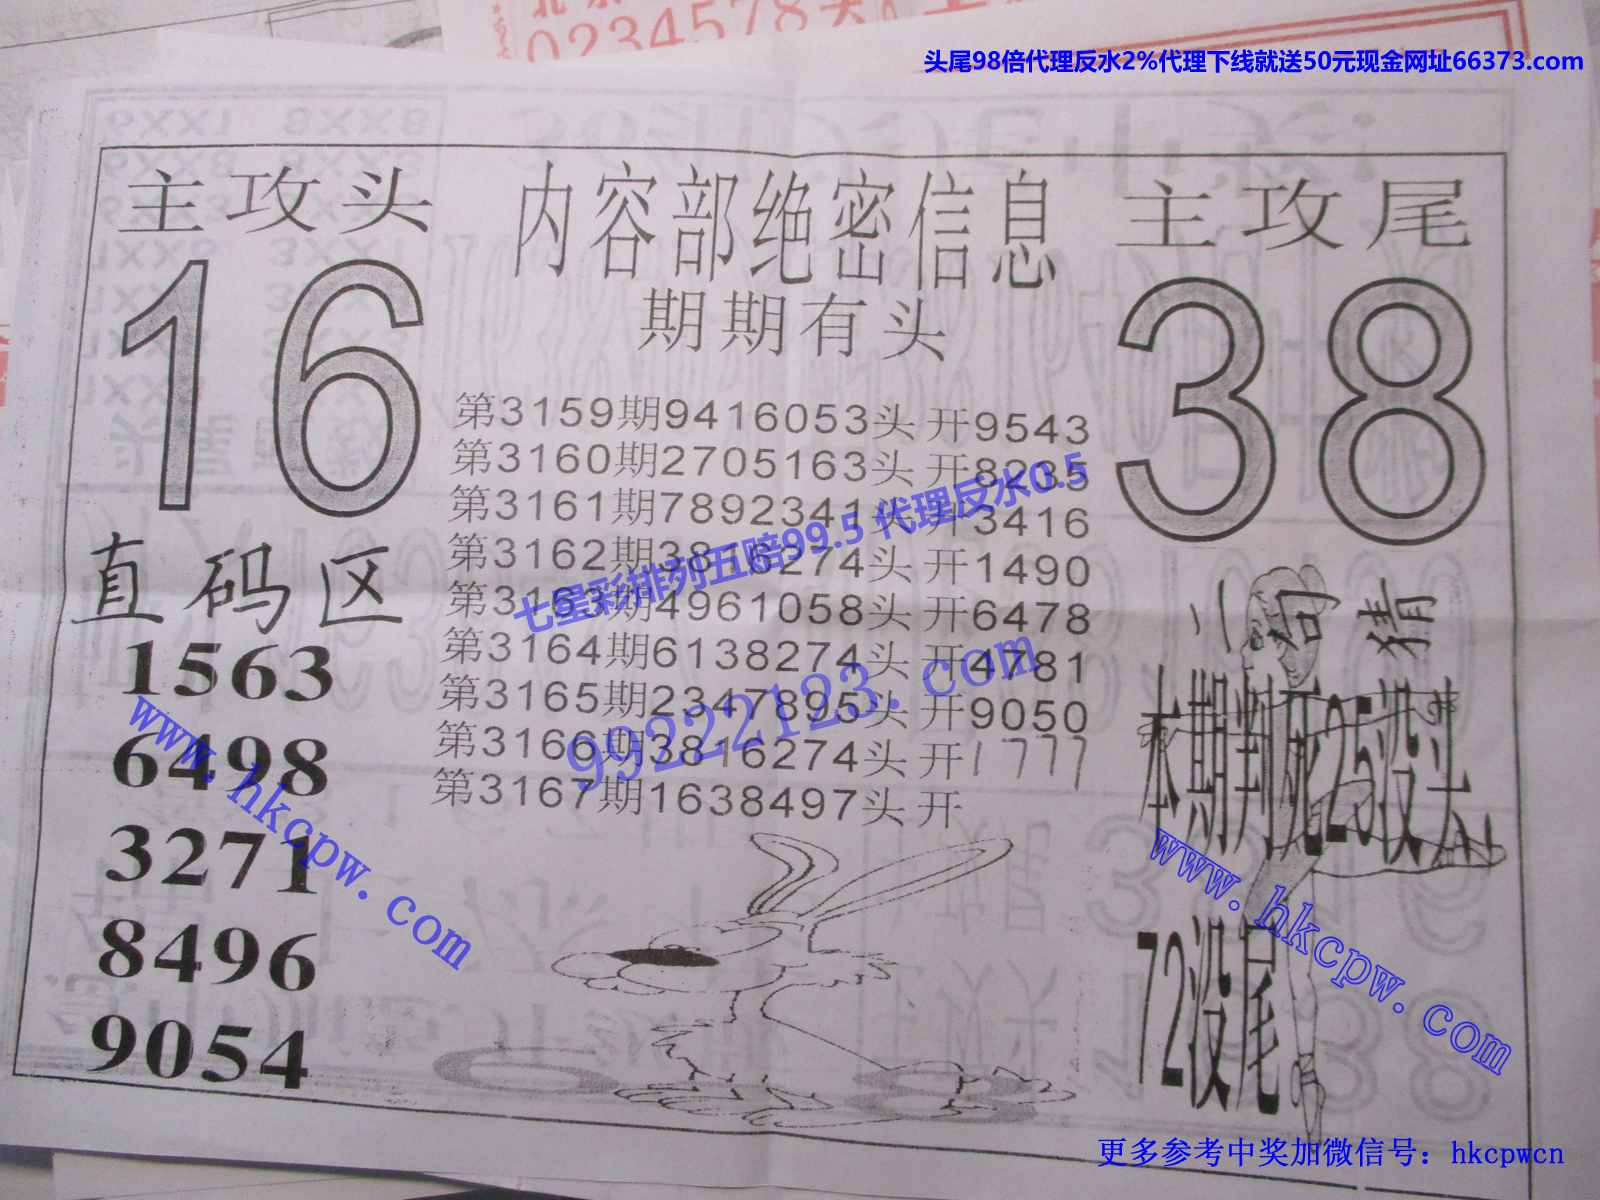 0234578头
头尾98倍代理反水2%代理下线就送50元现金网址66373.com
主攻头
16
内容部绝密信息
期期有头
主攻尾
38
第3159期9416053头 开9543
第3160期2705163头 开8235
第3161期7892341头 开3416
第3162期3816274头 开1490
第3163期4961058头 开6478
第3164期6138274头 开4781
第3165期2347895头 开9050
第3166期3816274头 开1777
第3167期1638497头 开
七星彩排列五赔99.5 代理反水0.5
99222123.com
直码区
1563
6498
3271
8496
9054
www.hkcpw.com
二句猜
本期判死25没头
72没尾
www.hkcpw.com
更多参考中奖加微信号：hkcpwcn